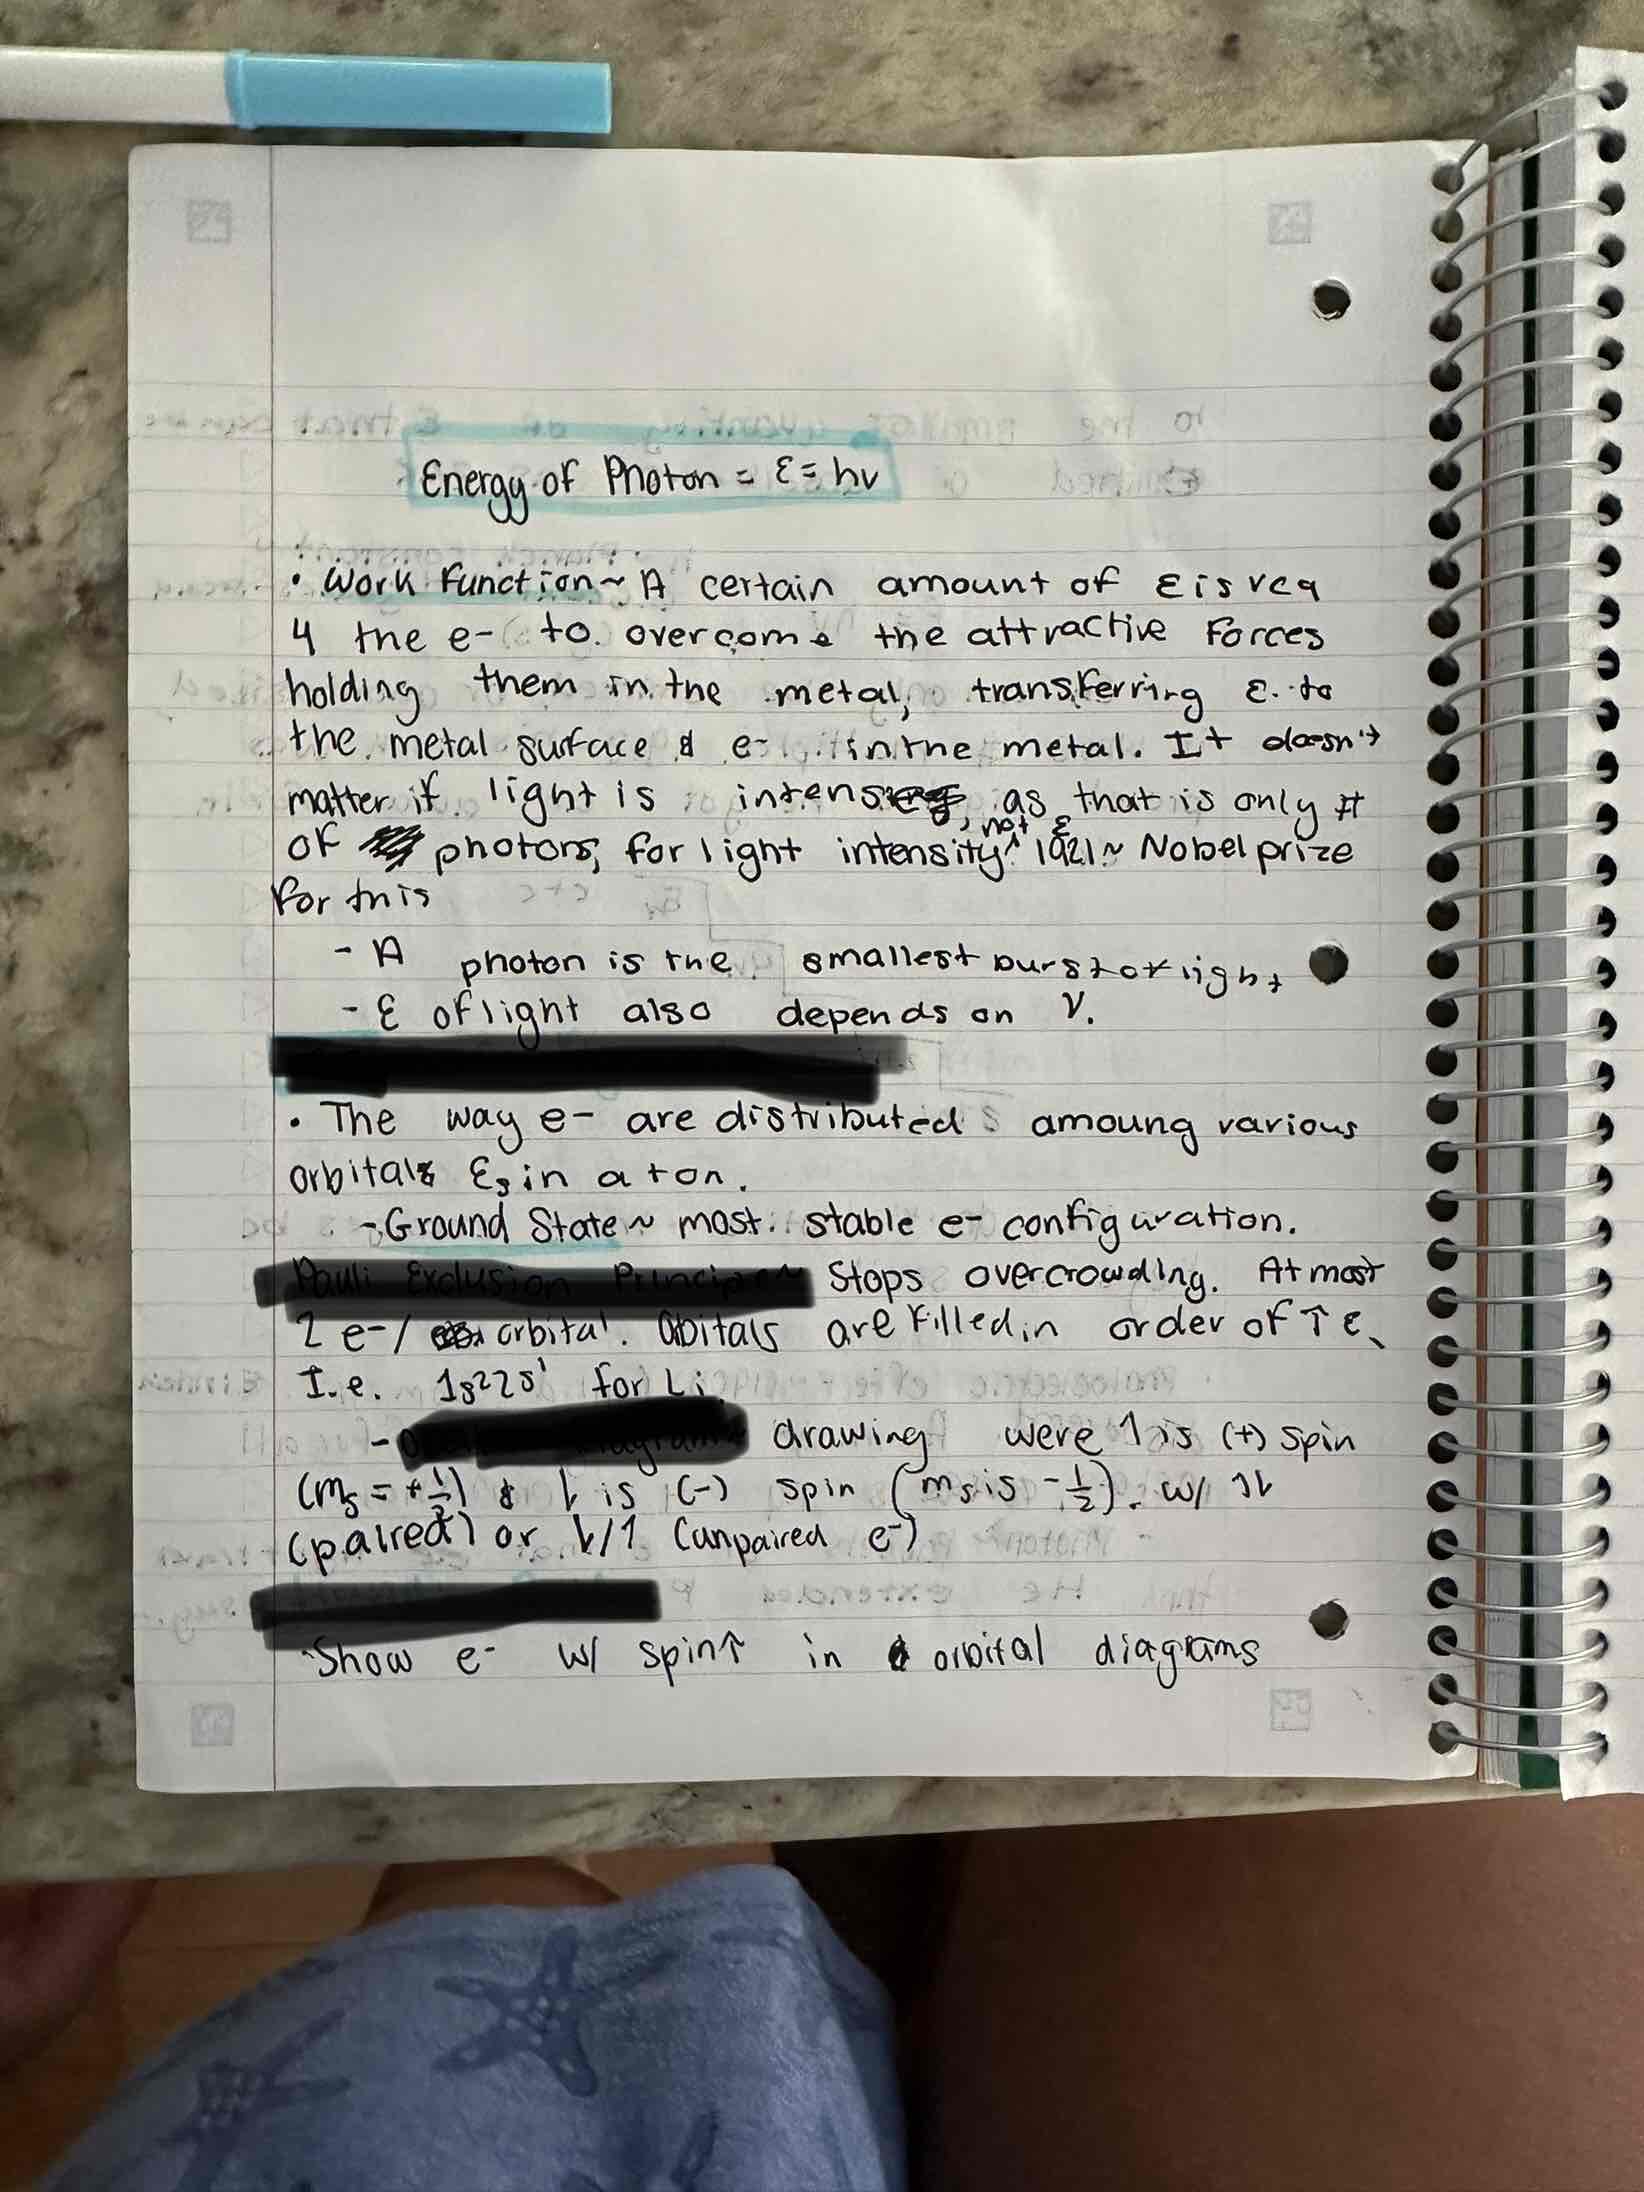 Energy of Photon = ε = hν
• Work Function ~ A certain amount of ε is req
4 the e- to overcome the attractive forces
holding them in the metal, transferring ε to
the metal surface & e- in the metal. It doesn't
matter if light is as that is only #
of photons, for light intensity, not ε 1921 ~ Nobel prize
for this
- A photon is the smallest burst of light
- ε of light also depends on ν.
• The way e- are distributed amoung various
orbitals in aton.
- Ground State ~ most stable e- configuration.
Pauli Exclusion Stops overcrowding. At most
2 e-/ orbital. Obitals are filled in order of ↑ ε.
I.e. 1s²2s¹ for Li
- drawing were 1 is (+) spin
(ms = +½) & ⇂ is (-) spin (ms is -½). w/ 1⇂
(paired) or ⇂/1 (unpaired e-)
Show e- w/ spin↑ in orbital diagrams